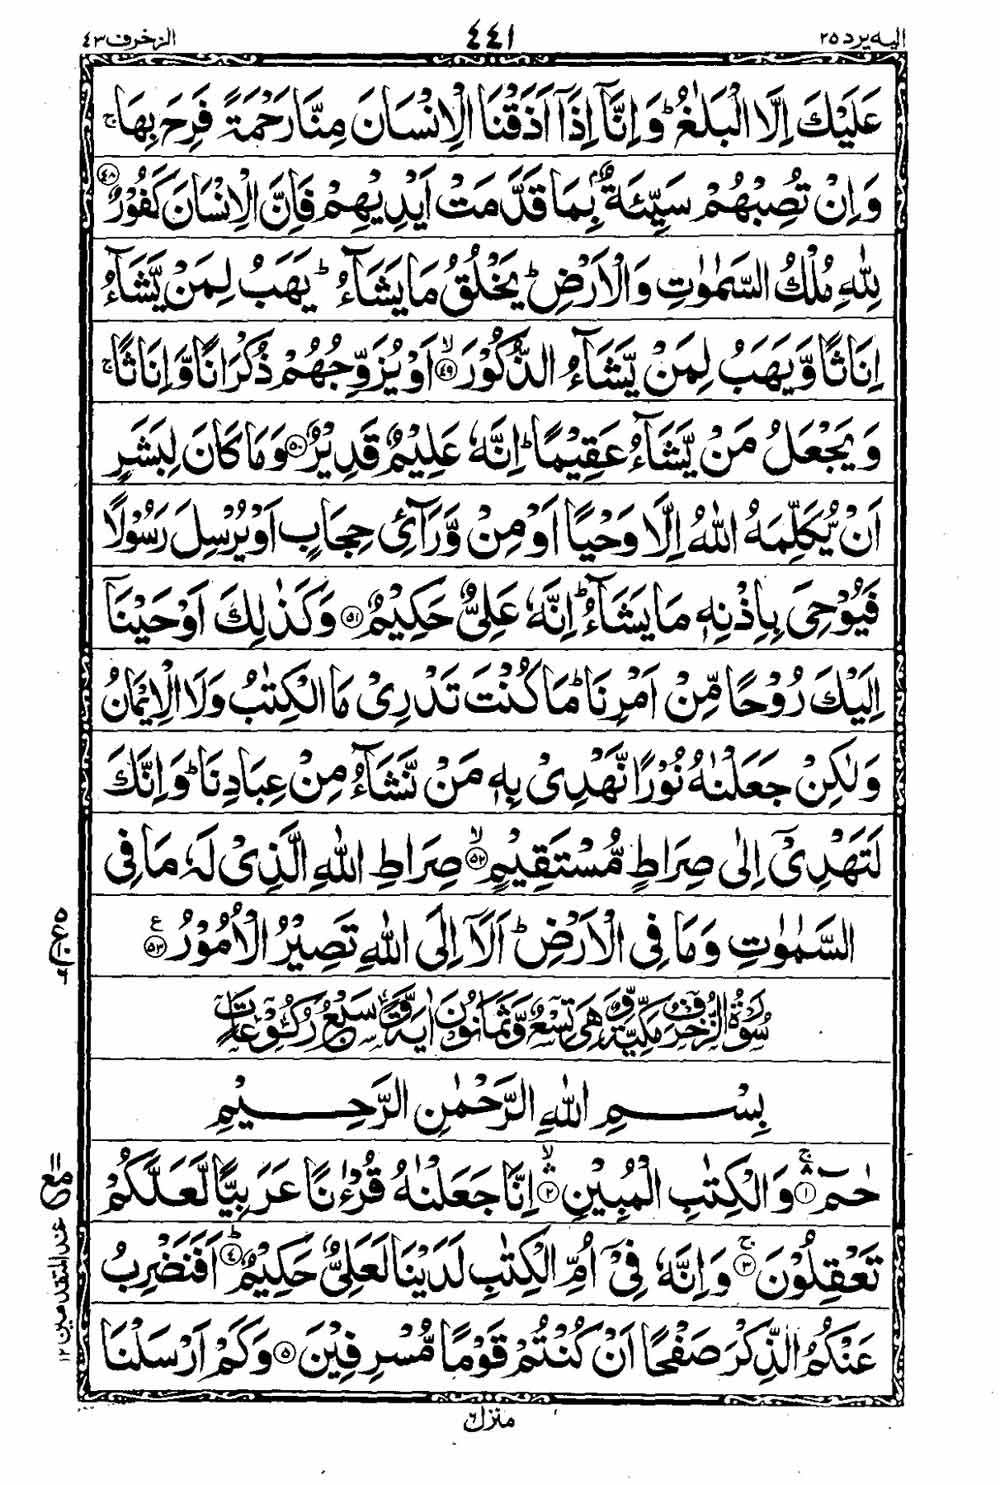 الیه یرد ٢٥
٤٤١
الزخرف ٤٣
عَلَيْكَ اِلَّا الْبَلٰغُ ؕ وَاِنَّاۤ اِذَاۤ اَذَقْنَا الْاِنْسَانَ مِنَّا رَحْمَةً فَرِحَ بِهَا ۚ
وَاِنْ تُصِبْهُمْ سَيِّئَةٌۢ بِمَا قَدَّمَتْ اَيْدِيْهِمْ فَاِنَّ الْاِنْسَانَ كَفُوْرٌ ﴿٤٨﴾
لِلّٰهِ مُلْكُ السَّمٰوٰتِ وَالْاَرْضِ ؕ يَخْلُقُ مَا يَشَآءُ ؕ يَهَبُ لِمَنْ يَّشَآءُ
اِنَاثًا وَّيَهَبُ لِمَنْ يَّشَآءُ الذُّكُوْرَ ﴿٤٩﴾ۙ اَوْ يُزَوِّجُهُمْ ذُكْرَانًا وَّاِنَاثًا ۚ
وَيَجْعَلُ مَنْ يَّشَآءُ عَقِيْمًا ؕ اِنَّهٗ عَلِيْمٌ قَدِيْرٌ ﴿٥٠﴾ وَمَا كَانَ لِبَشَرٍ
اَنْ يُّكَلِّمَهُ اللّٰهُ اِلَّا وَحْيًا اَوْ مِنْ وَّرَآئِ حِجَابٍ اَوْ يُرْسِلَ رَسُوْلًا
فَيُوْحِىَ بِاِذْنِهٖ مَا يَشَآءُ ؕ اِنَّهٗ عَلِىٌّ حَكِيْمٌ ﴿٥١﴾ وَكَذٰلِكَ اَوْحَيْنَاۤ
اِلَيْكَ رُوْحًا مِّنْ اَمْرِنَا ؕ مَا كُنْتَ تَدْرِىْ مَا الْكِتٰبُ وَلَا الْاِيْمَانُ
وَلٰكِنْ جَعَلْنٰهُ نُوْرًا نَّهْدِىْ بِهٖ مَنْ نَّشَآءُ مِنْ عِبَادِنَا ؕ وَاِنَّكَ
لَتَهْدِىْۤ اِلٰى صِرَاطٍ مُّسْتَقِيْمٍ ﴿٥٢﴾ۙ صِرَاطِ اللّٰهِ الَّذِىْ لَهٗ مَا فِى
السَّمٰوٰتِ وَمَا فِى الْاَرْضِ ؕ اَلَاۤ اِلَى اللّٰهِ تَصِيْرُ الْاُمُوْرُ ﴿٥٣﴾ ع
سُوْرَةُ الزُّخْرُفِ مَكِّيَّةٌ وَّهِىَ تِسْعٌ وَّثَمَانُوْنَ اٰيَةً وَّسَبْعُ رُكُوْعَاتٍ
بِسْمِ اللّٰهِ الرَّحْمٰنِ الرَّحِيْمِ
حٰمٓ ﴿١﴾ۚۛ وَالْكِتٰبِ الْمُبِيْنِ ﴿٢﴾ۙۛ اِنَّا جَعَلْنٰهُ قُرْءٰنًا عَرَبِيًّا لَّعَلَّكُمْ
تَعْقِلُوْنَ ﴿٣﴾ۚ وَاِنَّهٗ فِىْۤ اُمِّ الْكِتٰبِ لَدَيْنَا لَعَلِىٌّ حَكِيْمٌ ﴿٤﴾ؕ اَفَنَضْرِبُ
عَنْكُمُ الذِّكْرَ صَفْحًا اَنْ كُنْتُمْ قَوْمًا مُّسْرِفِيْنَ ﴿٥﴾ وَكَمْ اَرْسَلْنَا
منزل ٦
مع
عند المتقدمين ١٢